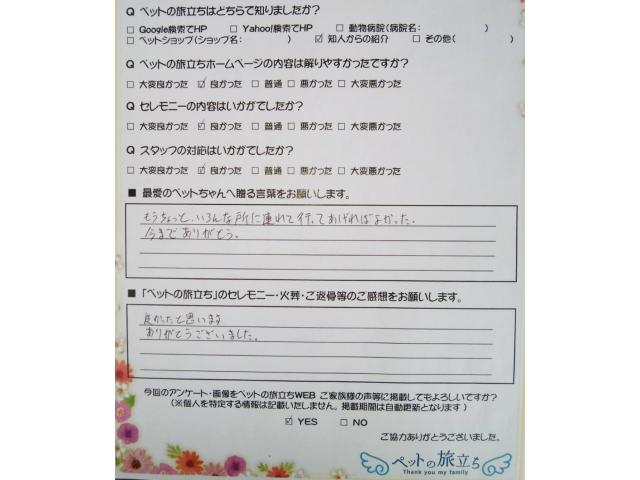 Q ペットの旅立ちはどちらで知りましたか?
□ Google検索でHP □ Yahoo!検索でHP □ 動物病院(病院名: )
□ ペットショップ(ショップ名: ) ☑ 知人からの紹介 □ その他( )
Q ペットの旅立ちホームページの内容は解りやすかったですか?
□ 大変良かった ☑ 良かった □ 普通 □ 悪かった □ 大変悪かった
Q セレモニーの内容はいかがでしたか?
□ 大変良かった ☑ 良かった □ 普通 □ 悪かった □ 大変悪かった
Q スタッフの対応はいかがでしたか?
□ 大変良かった ☑ 良かった □ 普通 □ 悪かった □ 大変悪かった
■ 最愛のペットちゃんへ贈る言葉をお願いします。
もうちょっと、いろんな所に連れて行ってあげればよかった。
今までありがとう。
■ 「ペットの旅立ち」のセレモニー・火葬・ご返骨等のご感想をお願いします。
良かったと思います
ありがとうございました。
今回のアンケート・画像をペットの旅立ちWEB ご家族様の声等に掲載してもよろしいですか?
(※個人を特定する情報は記載いたしません。掲載期間は自動更新となります)
☑ YES □ NO
ご協力ありがとうございました。
ペットの旅立ち
Thank you my family